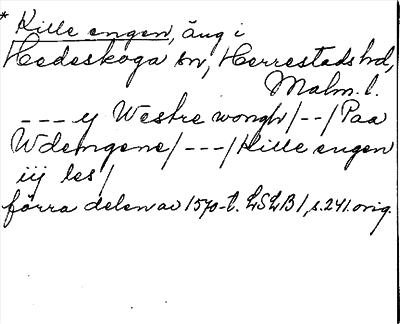 * Kille engen, äng i
Hedeskoga sn, Herrestads hd,
Malm. l.
--- y Westre wongh/--/Paa
Wdengene/---/Kille engen
iij les/
förra delen av 1570-t. LSLB 1, s. 241. orig.